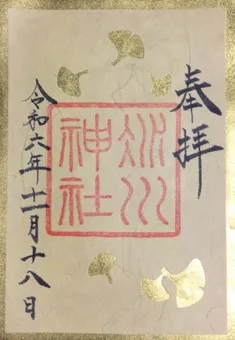 奉拝
氷川
神社
令和六年十一月十八日